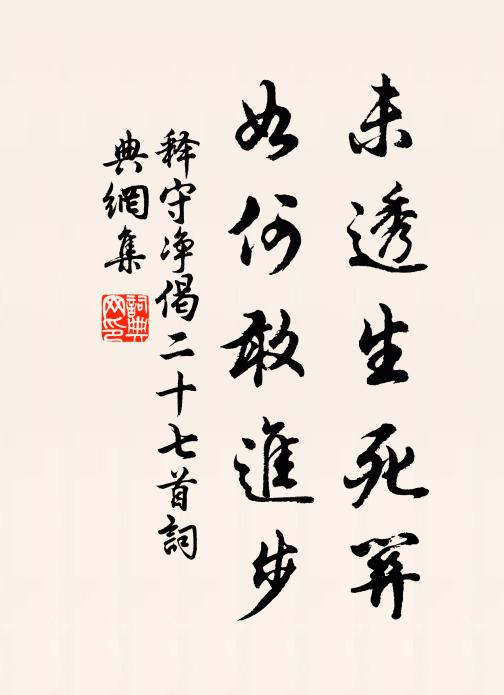 未透生死關
如何敢進步
释守净偈二十七首詞
典網集
詞典
网印